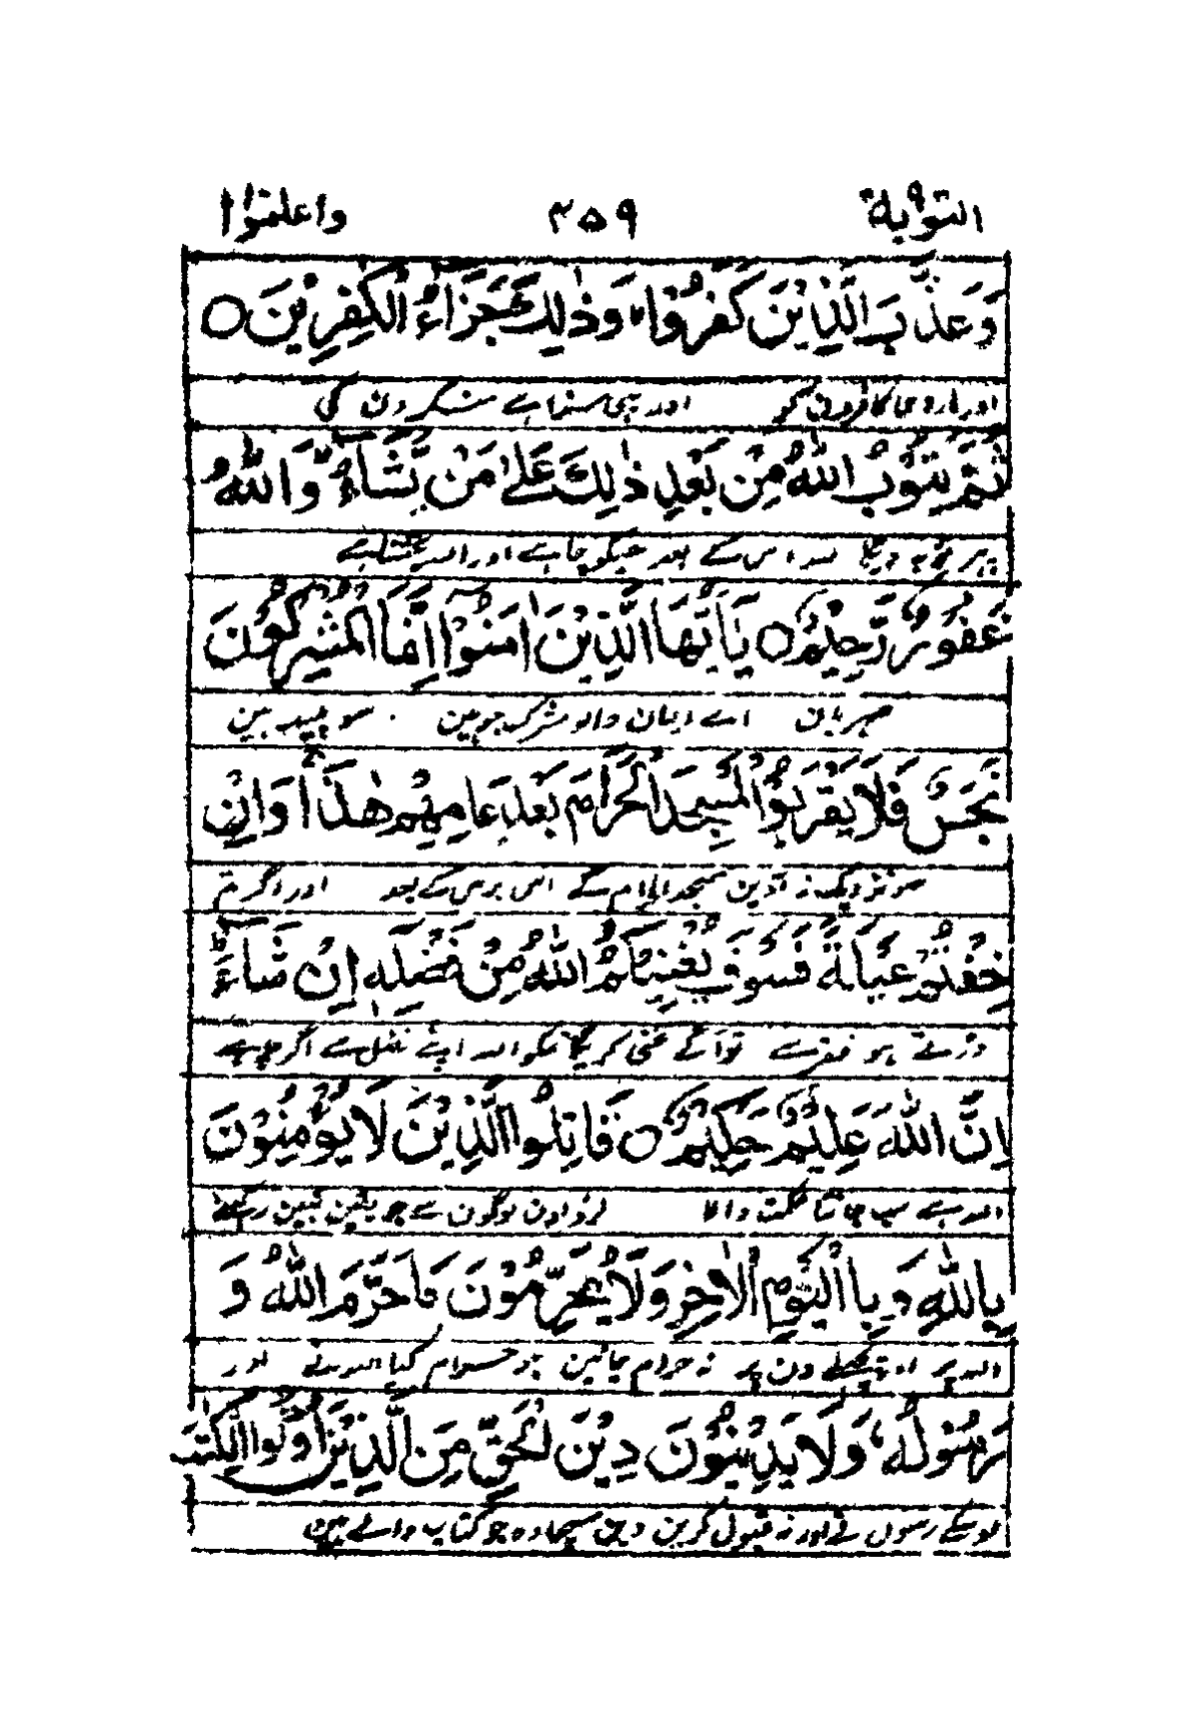 التوبة ٩ ٣٥٩ واعلموا
وَعَذَّبَ الَّذِيْنَ كَفَرُوْا ؕ وَذٰلِكَ جَزَآءُ الْكٰفِرِيْنَ ○
اور مار دی کافروں کو اور یہی سزا ہے منکروں کی
ثُمَّ يَتُوْبُ اللّٰهُ مِنْۢ بَعْدِ ذٰلِكَ عَلٰى مَنْ يَّشَآءُ ؕ وَاللّٰهُ
پہر توبہ دیگا اللہ اس کے بعد جسکو چاہے اور اللہ بخشتا ہے
غَفُوْرٌ رَّحِيْمٌ ○ يٰۤاَيُّهَا الَّذِيْنَ اٰمَنُوْۤا اِنَّمَا الْمُشْرِكُوْنَ
مہربان اے ایمان والو مشرک جو ہین سو پلید ہین
نَجَسٌ فَلَا يَقْرَبُوا الْمَسْجِدَ الْحَرَامَ بَعْدَ عَامِهِمْ هٰذَا ۚ وَاِنْ
سو نزدیک نہ آوین مسجد الحرام کے اس برس کے بعد اور اگر تم
خِفْتُمْ عَيْلَةً فَسَوْفَ يُغْنِيْكُمُ اللّٰهُ مِنْ فَضْلِهٖۤ اِنْ شَآءَ ؕ
ڈرتے ہو فقر سے تو آگے غنی کریگا تمکو اللہ اپنے فضل سے اگر چاہے
اِنَّ اللّٰهَ عَلِيْمٌ حَكِيْمٌ ○ قَاتِلُوا الَّذِيْنَ لَا يُؤْمِنُوْنَ
اللہ ہے سب جانتا حکمت والا لڑو اون لوگون سے جو یقین نہین رکہتے
بِاللّٰهِ وَ بِا الْيَوْمِ الْاٰخِرِ وَلَا يُحَرِّمُوْنَ مَا حَرَّمَ اللّٰهُ وَ
اللہ پر نہ پچہلے دن پر نہ حرام جانین جو حرام کیا اللہ نے اور
رَسُوْلُهٗ وَلَا يَدِيْنُوْنَ دِيْنَ الْحَقِّ مِنَ الَّذِيْنَ اُوْتُوا الْكِتٰبَ
اوسکے رسول نے اور نہ قبول کرین دین سچا وہ جو کتاب والے ہین